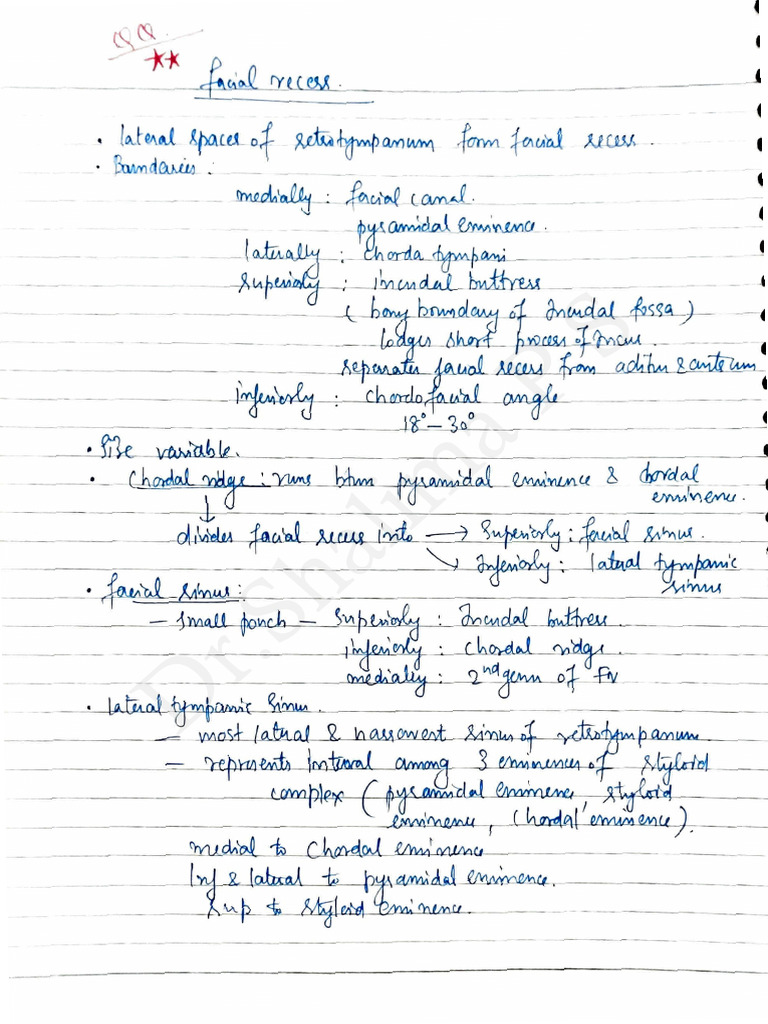 QQ
★★
facial recess.
• lateral spaces of retrotympanum form facial recess.
• Boundaries:
medially : facial canal.
pyramidal eminence.
laterally : chorda tympani
superiorly : incudal buttress
( bony boundary of Incudal fossa )
lodges short process of Incus.
separates facial recess from aditus & antrum
inferiorly : chordofacial angle
18° – 30°
• Size variable.
• Chordal ridge : runs btwn pyramidal eminence & chordal
eminence.
↓
divides facial recess into → Superiorly : facial sinus.
↘ Inferiorly : lateral tympanic
sinus
• facial sinus :
– small pouch – superiorly : Incudal buttress.
inferiorly : chordal ridge.
medially : 2nd genu of FN
• lateral tympanic sinus.
– most lateral & narrowest sinus of retrotympanum.
– represents interval among 3 eminences of styloid
complex ( pyramidal eminence, styloid
eminence, chordal eminence ).
medial to chordal eminence
Inf & lateral to pyramidal eminence.
sup to styloid eminence.
Dr.Shahma P S